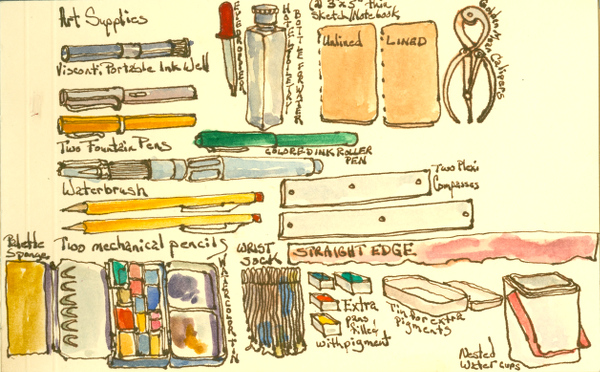 Art Supplies
Visconti, Portable Ink Well
EYE DROPPER
HOTEL TOILETRY
BOTTLE FOR WATER
3 x 5" thin
Sketch/Notebook
Unlined
LINED
Golden Mean Calipers
Two Fountain Pens
COLORED INK ROLLER
PEN
Waterbrush
Two Plexi
Compasses
Two mechanical pencils
STRAIGHT EDGE
Palette
Sponge
WATERCOLOR TIN
WRIST
SOCK
Extra
pans
filled
with pigment
Tin for extra
pigments
Nested
Water cups